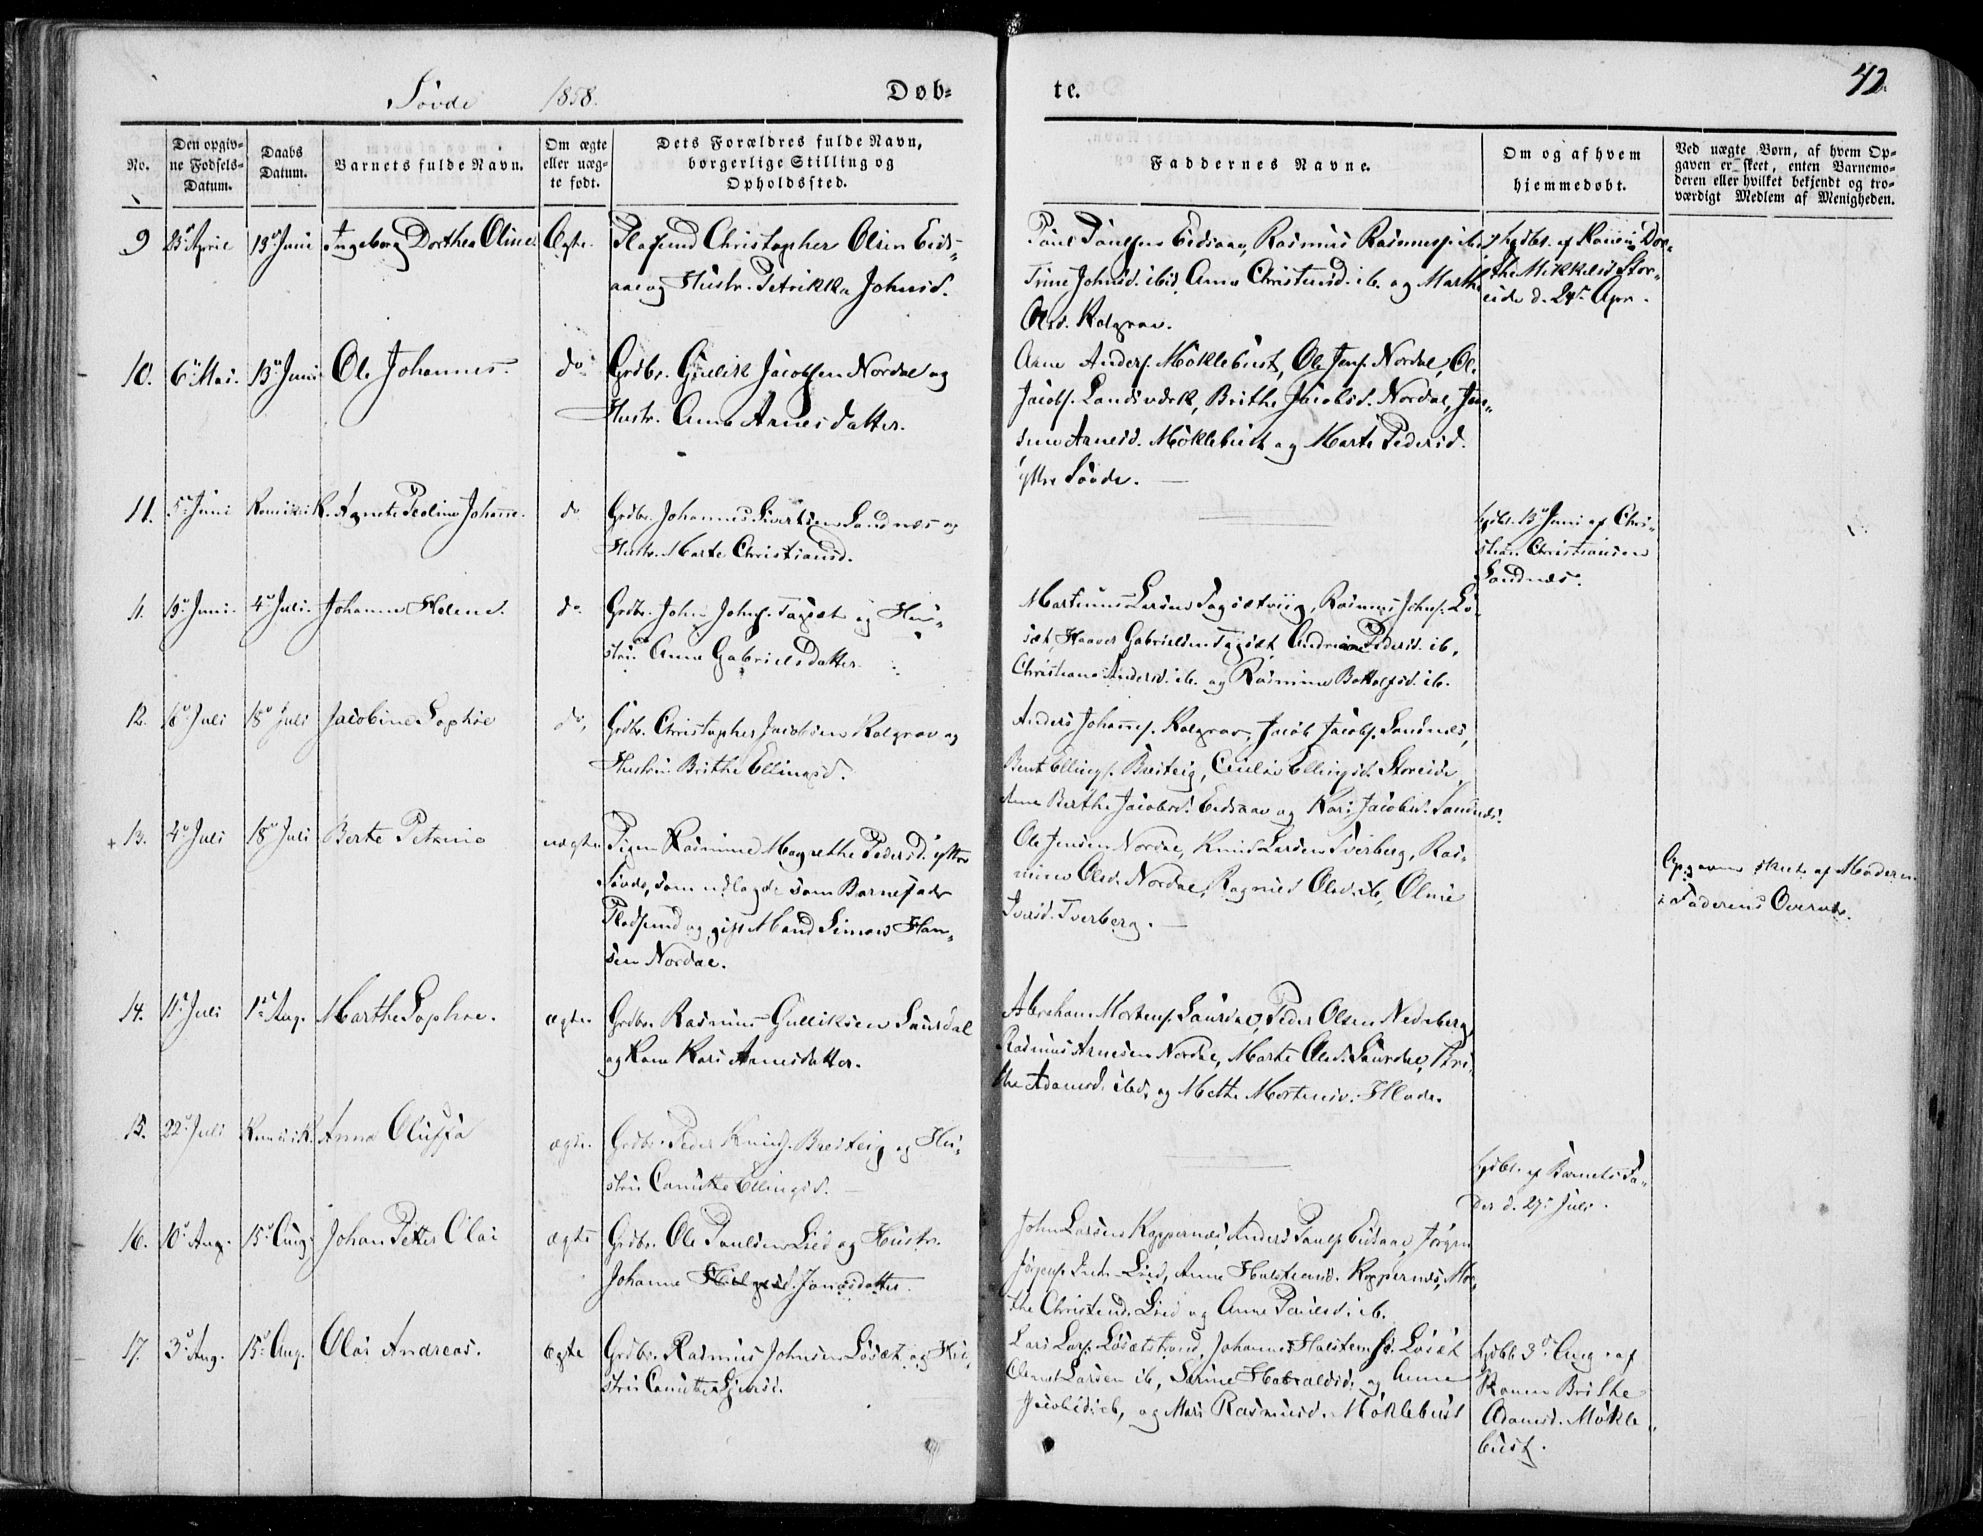 Søvde 1858.
Døb=
te.
42.
No.
Den opgiv=
ne Fødsels=
Datum.
Daabs
Datum.
Barnets fulde Navn.
Om ægte
eller uæg=
te født.
Dets Forældres fulde Navn,
borgerlige Stilling og
Opholdssted.
Faddernes Navne.
Om og af hvem
hjemmedøbt.
Ved uægte Børn, af hvem Op=
gaven er skeet, enten Barnemo=
deren eller hvilket bekjendt og tro=
værdigt Medlem af Menigheden.
9 23de April 13de Juni Ingeborg Dorthea Oline Ægte.
Pladsmd Christopher Olsen Eids=
aae og Hustr. Petrikka Johnsd.
Paul Paulsen Eidsaae, Rasmus Rasmuss. ib.
Trine Johnsd. ibid, Anne Christensd. ib. og Marthe
Olsd. Kolgrov.
hjdbt. af Konen Dor=
the Mikkelsd Stor=
eide d. 24de Apr.
10. 6te Mai. 13de Juni Ole Johannes do
Grdbr. Gullik Jacobsen Nordal og
Hustr. Anne Arnesdatter.
Arne Anders. Møklebust, Ole Jens. Nordal, Ol.
Jacobs. Landsværk, Brithe Jacobsd. Nordal, Jen=
sine Arnesd. Møklebust og Marte Pedersd.
yttre Søvde.
11. 5te Juni Agnete Peoline Johanne. do
Grdbr. Johannes Sivertsen Sandnæs og
Hustr. Marte Christiansd.
hjdbt. 13de Juni af Chri=
stian Christiansen
Sandnæs.
11. 19de Juni. 4de Juli. Johanne Helene. do
Grdbr. John Johns. Tagsæt og Hu=
stru Anne Gabrielsdatter.
Martinus Larsen Tagsætviig, Rasmus Johns. Lø=
sæt, Haaver Gabrielsen Tagsæt, Andrine Pedersd. ib,
Christiane Andersd. ib. og Rasmine Bottolfsd. ib.
12. 16de Juli 18de Juli Jacobine Sophie do
Grdbr. Christopher Jacobsen Kolgrov og
Hustru Brithe Ellingsd.
Anders Johanns. Kolgrov, Jacob Jacobs. Sandnæs,
Bent Ellings. Breiteig, Ellingsd. Storeide,
Berthe Jacobsd. Eidsaae og Kari Jacobsd. Sandnæs.
+ 13. 4de Juli 18de Juli Berte Petrine uægte
Pigen Rasmine Magrethe Pedersd. yttre
Søvde, som udlagde som Barnefader
Pladsmd og gift Mand Simon Han=
sen Nordal.
Ole Jensen Nordal, Knud Larsen Tverberg, Ras=
mine Olsd. Nordal, Ragnild Olsd. ib, Oline
Iversd. Tverberg.
Opgaven skeet af Moderen
i Faderens Overvær.
14. 11te Juli 1ste Aug. Marthe Sophie. ægte.
Grdbr. Rasmus Gulliksen Saurdal
og Kone Kari Arnesdatter.
Abraham Mortens. Saurdal, Peder Olsen Nedreberg,
Rasmus Arnesen Nordal, Marte Olsd. Saurdal, Bri=
the Adamsd. ibd, og Mette Mortensd. Hlade.
15. 22de Juli Anne Oluffa ægte.
Grdbr. Peder Knuds. Breiteig og Hu=
stru Canutte Ellingsd.
hjdbt. af Barnets Fa=
der d. 27de Juli.
16. 10de Aug. 15de Aug. Johan Petter Olai ægte
Grdbr. Ole Paulsen Lied og Hustr.
Johanne Jonasdatter.
John Larsen Koppernæs, Anders Pauls. Eidsaae, Jørgen
Jørgens. Indr. Lied, Anne Halstensd. Koppernæs, Mar=
the Christensd. Lied og Anne Paulsd. ib.
17. 3de Aug. 15de Aug. Olai Andreas. Ægte
Grdbr. Rasmus Johnsen Løsæt og Hu=
stru Canutte
Lars Lars. Løsætstrand, Johannes Halstens. Løsæt
Larsen ib, Sørine Haraldsd. og Anne
Jacobsd. ib, og Mari Rasmusd. Møklebust
hjdbt. 3de Aug. af
Konen Brithe
Adamsd. Møkle=
bust.